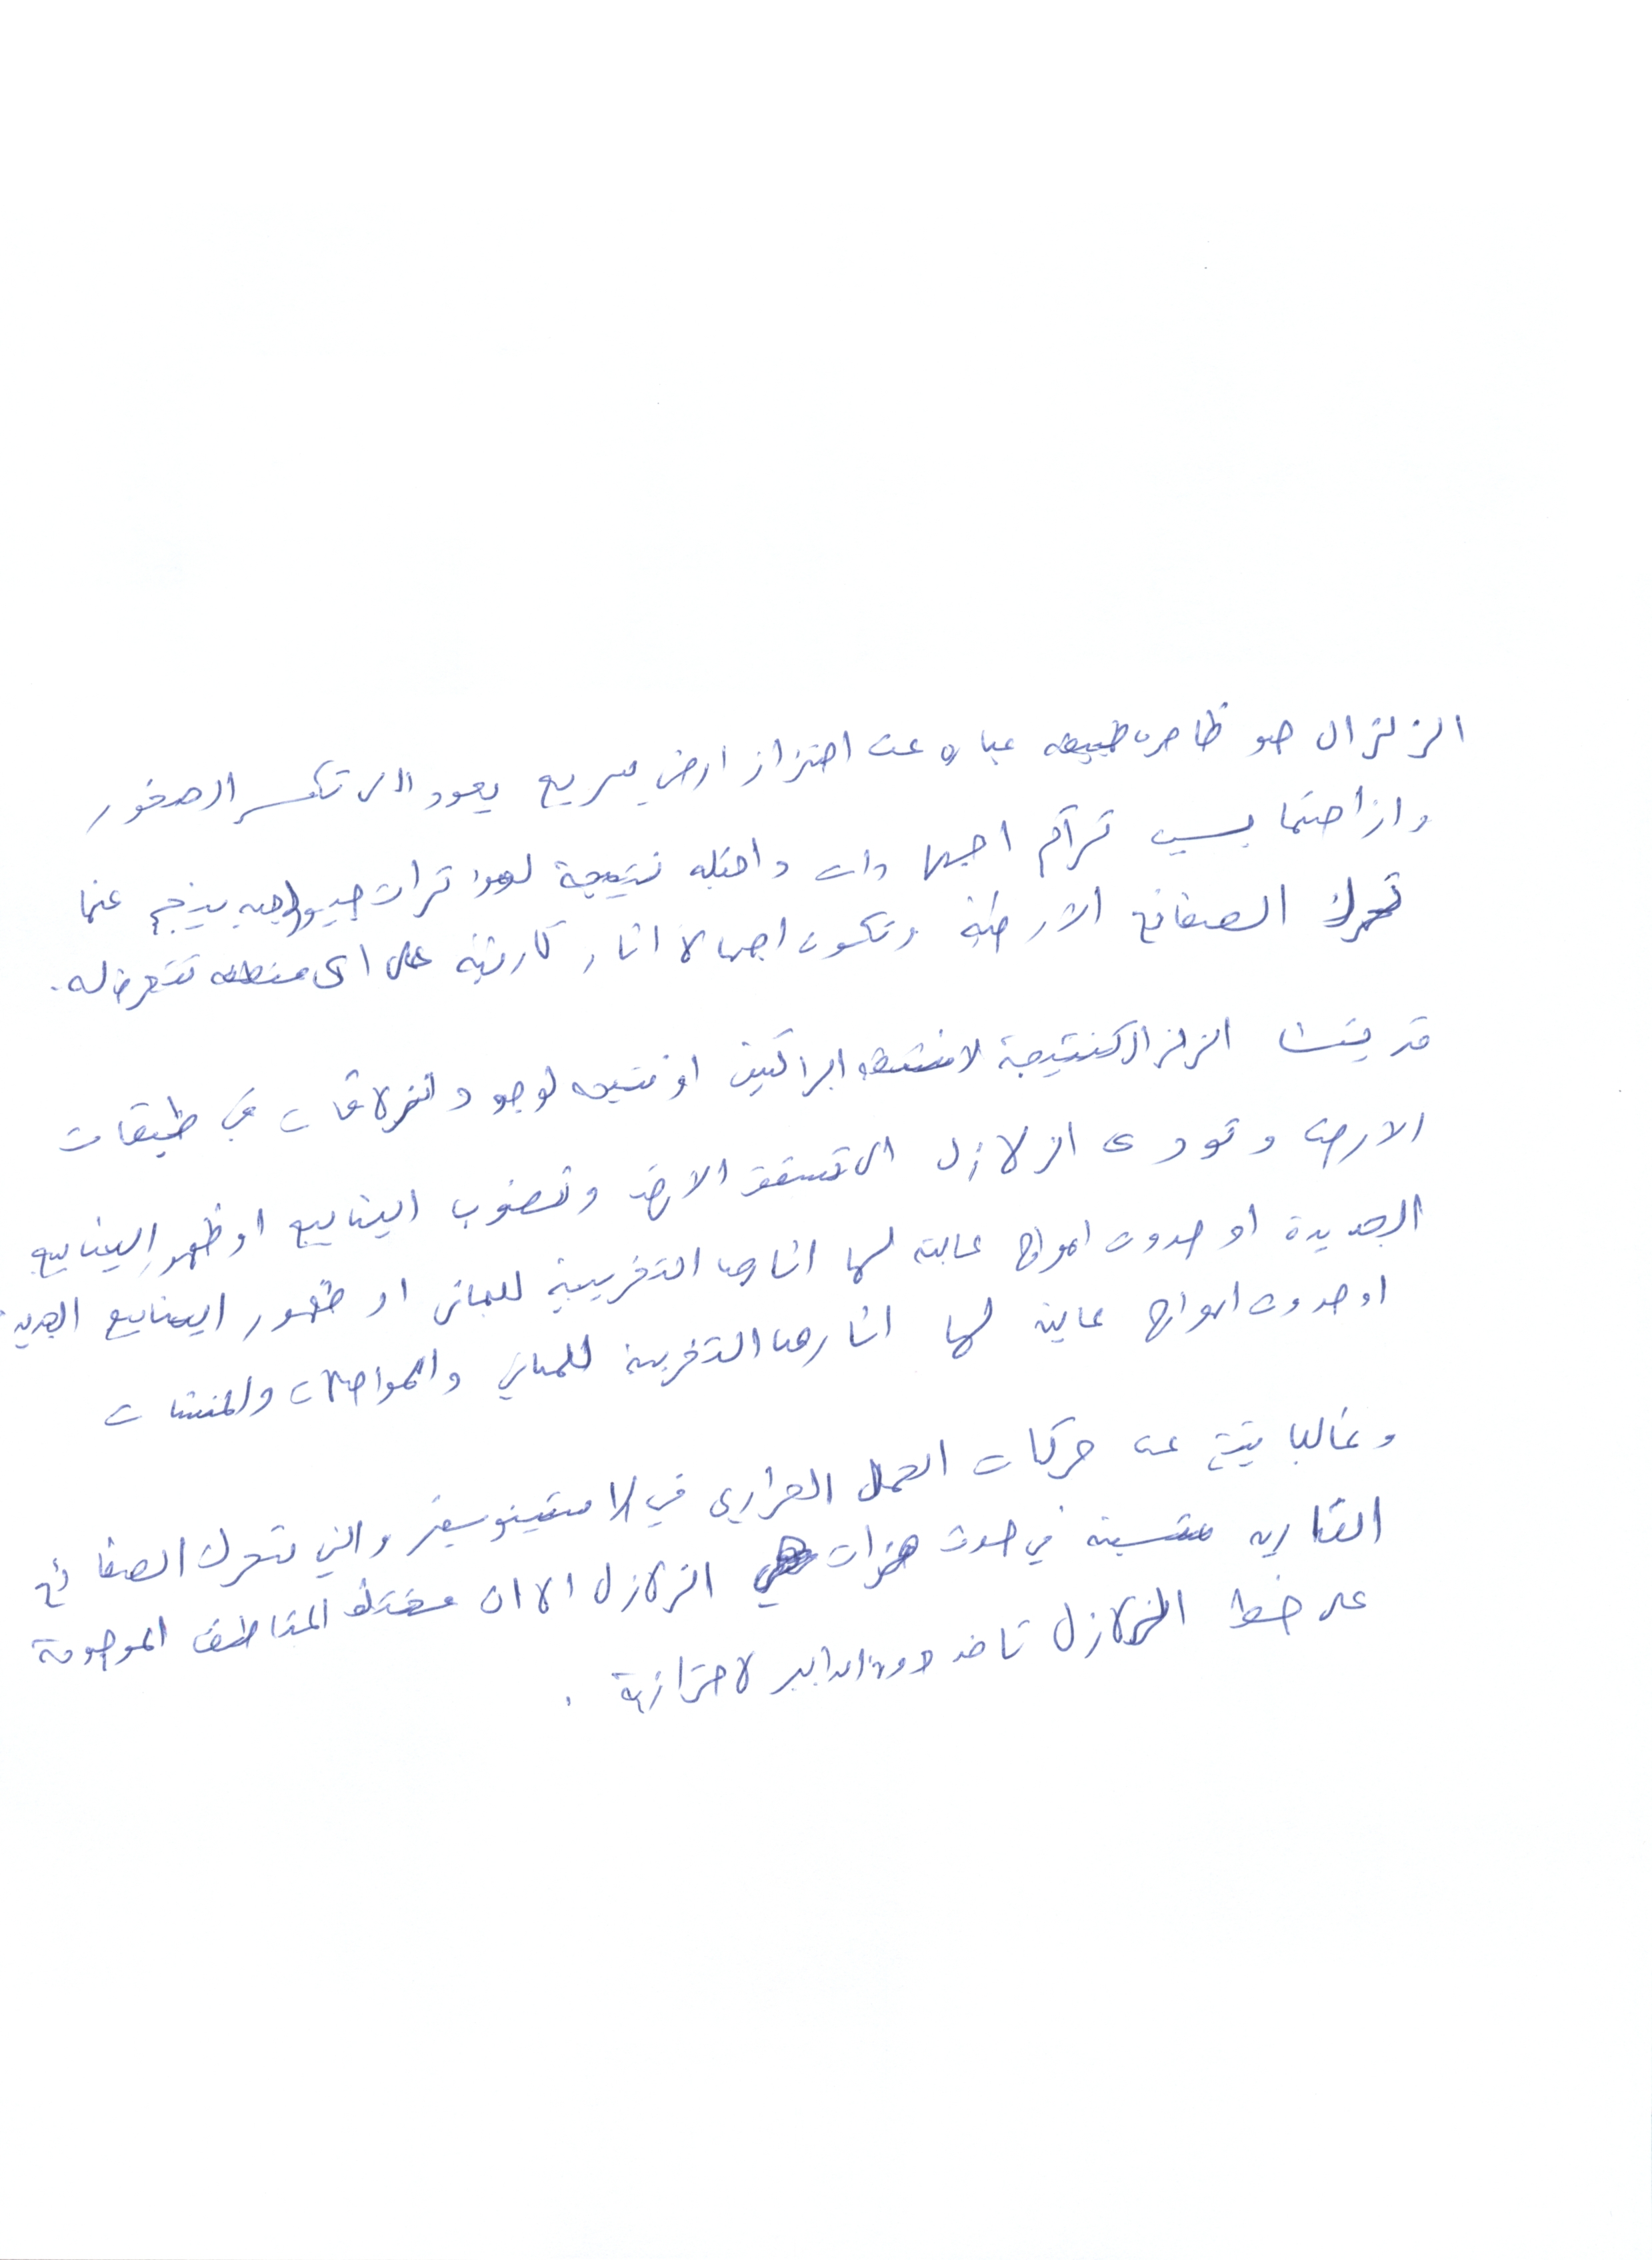 الزلزال هو ظاهره طبيعه عباره عن اهتزاز ارضي سريع يعود الى تكسر الصخور
وازاحتها بسبب تراكم اجهادات داخليه نتيجة لمؤثرات جيولوجيه ينجم عنها
تحرك الصفائح الارضية وتكون اجمالا اثار كارثية على اى منطقه تتعرض له.
قد ينشا الزلزال كنتيجة لانشطه البراكين او نتيجه لوجود انزلاقات في طبقات
الارض وتودى الزلازل الى تشقق الارض ونضوب الينابيع او ظهور الينابيع
الجديدة او حدوث امواج عالية لها اثارها التخريبية للمبانى او ظهور الينابيع الجديدة
او حدوث امواج عالية لها اثارها التخريبية للمباني والمواصلات والمنشات
وغالبا ينتج عن حركات الحمل الحراري في الاستينوسفير والتي تتحرك الصفائح
القاريه متسببة في حدوث هزات هي الزلازل الا ان مختلف المناطق الموجودة
على خط الزلازل تاخد دون التدابير لاحترازية .